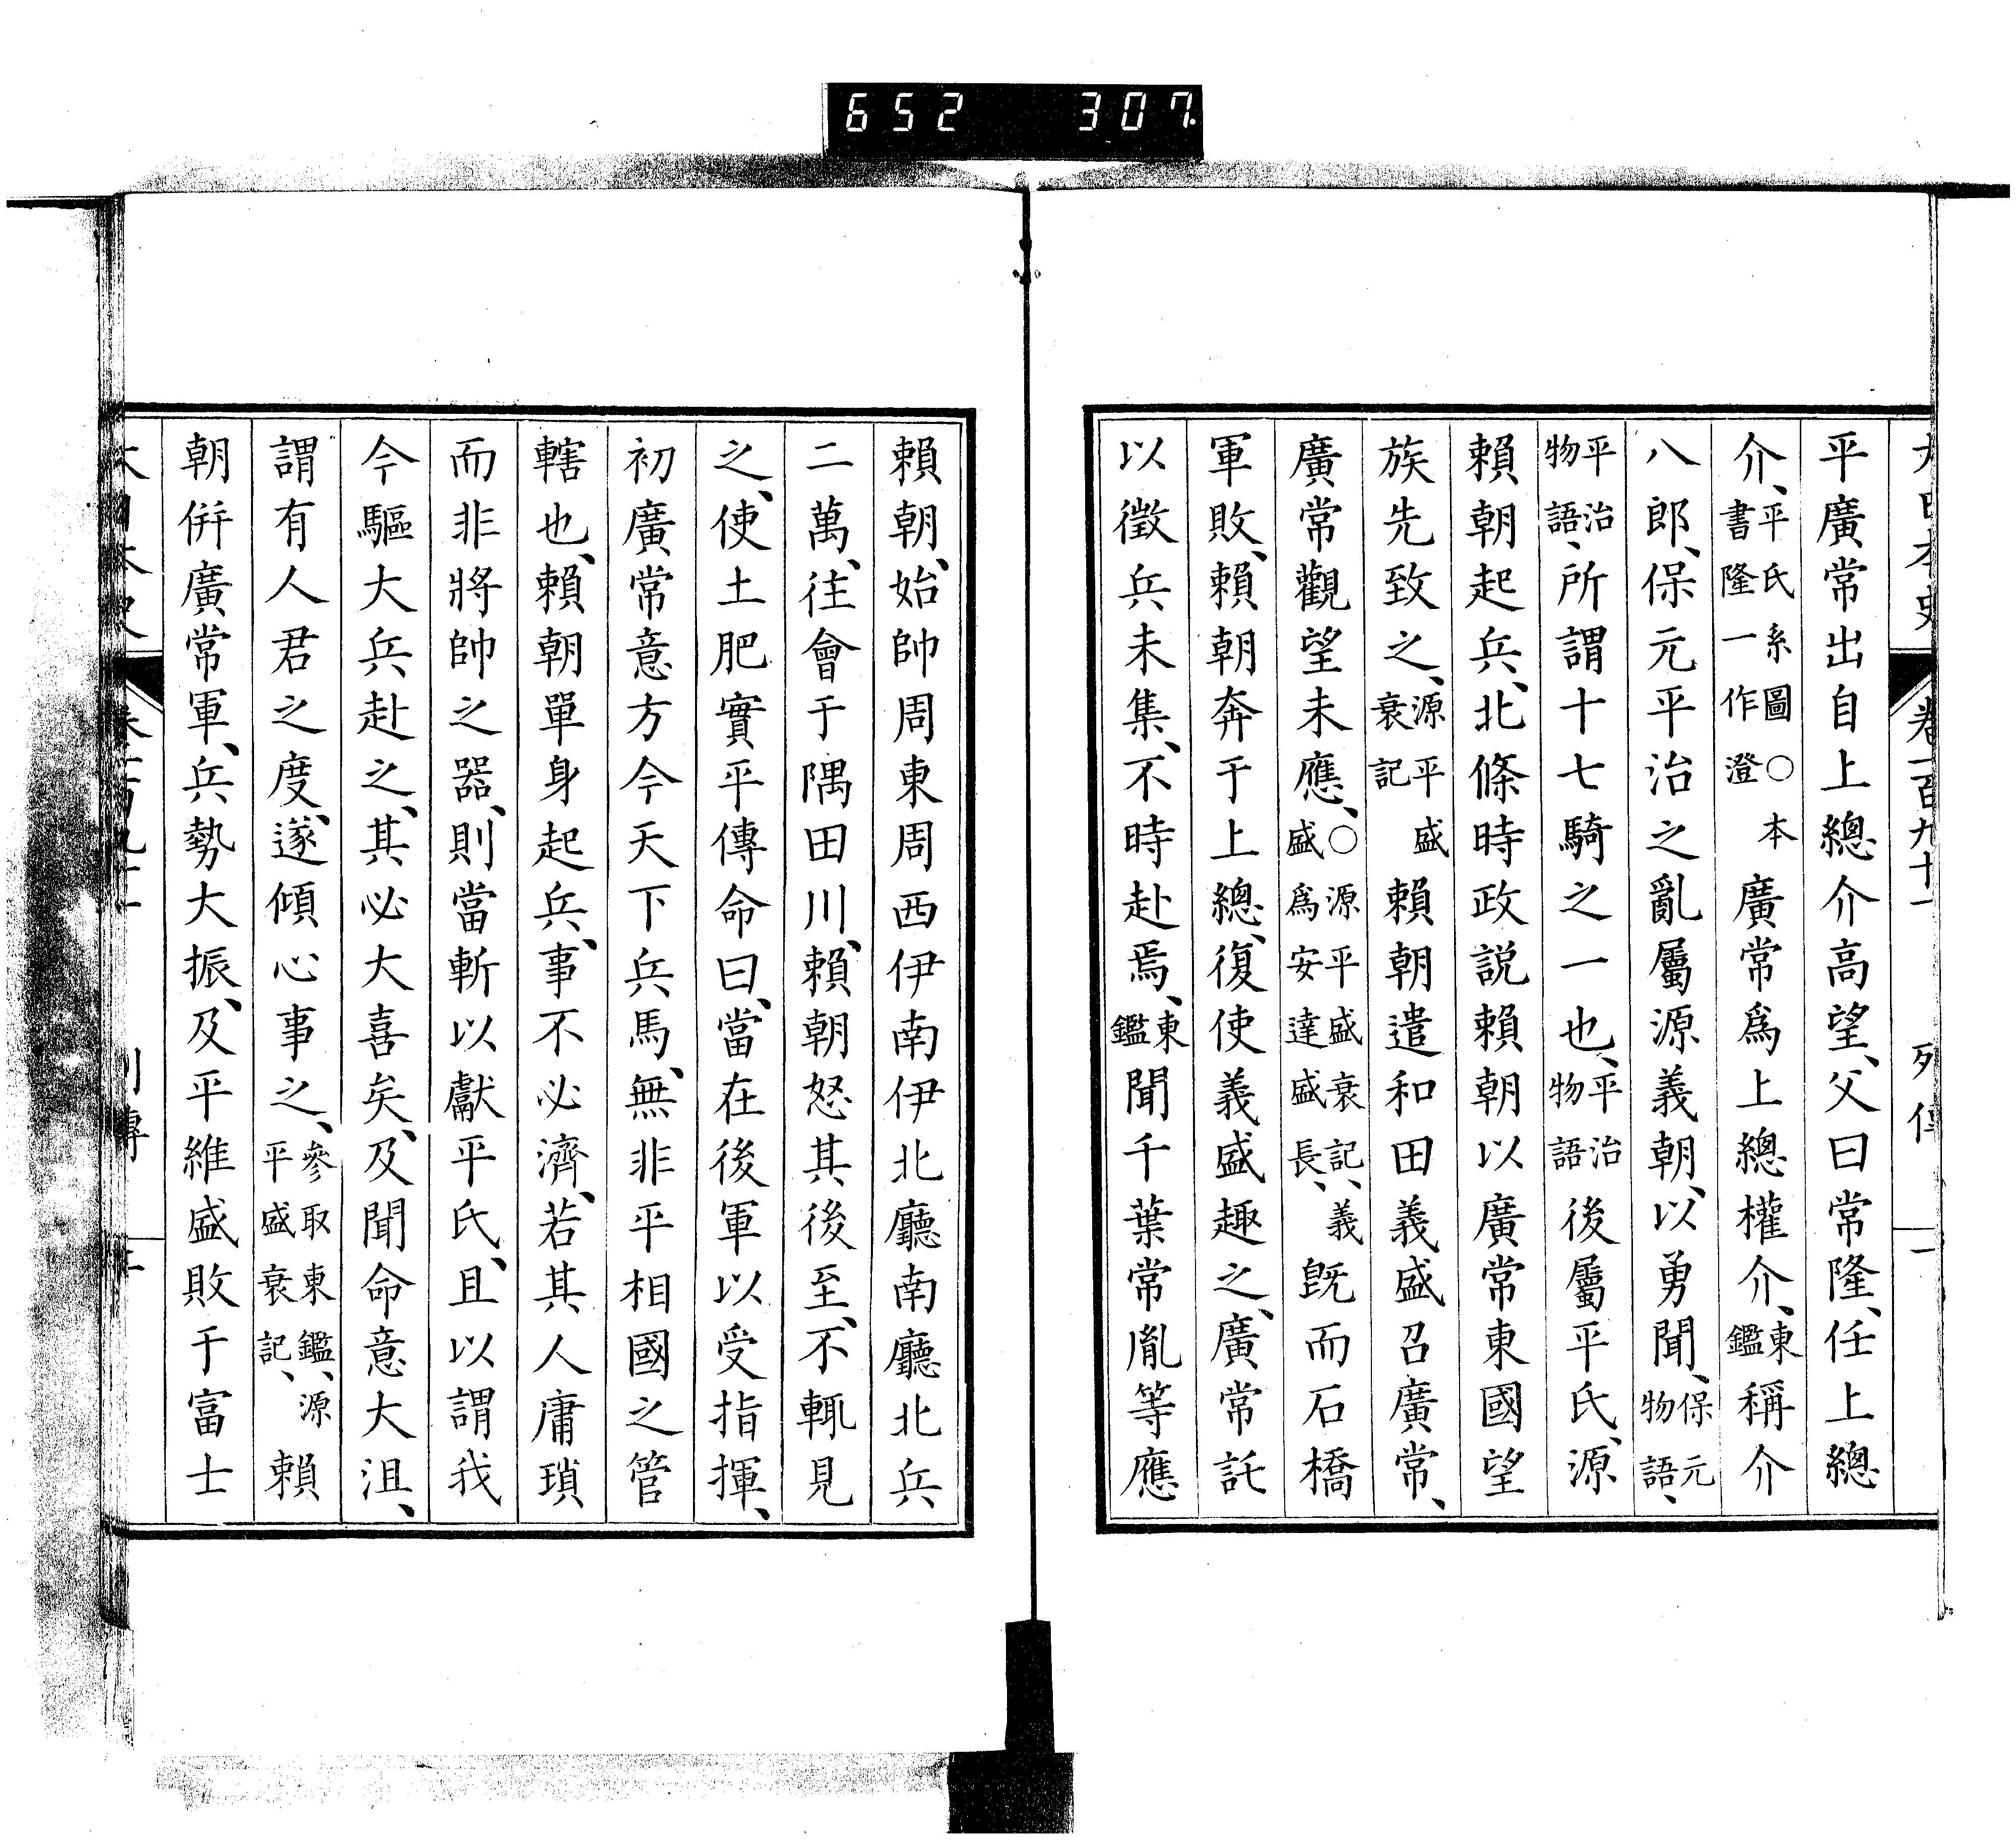 652 307
大日本史 卷一百九十一 列傳 一
平廣常出自上總介高望、父曰常隆、任上總
介、平氏系圖○本書隆一作澄廣常爲上總權介、東鑑稱介
八郎、保元平治之亂屬源義朝、以勇聞、保元物語、
平治物語、所謂十七騎之一也、平治物語後屬平氏、源
賴朝起兵、北條時政説賴朝以廣常東國望
族先致之、源平盛衰記賴朝遣和田義盛召廣常、
廣常觀望未應、○源平盛衰記、義盛爲安達盛長、既而石橋
軍敗、賴朝奔于上總、復使義盛趣之、廣常託
以徵兵未集、不時赴焉、東鑑聞千葉常胤等應
賴朝、始帥周東周西伊南伊北廳南廳北兵
二萬、往會于隅田川、賴朝怒其後至、不輒見
之、使土肥實平傳命曰、當在後軍以受指揮、
初廣常意方今天下兵馬、無非平相國之管
轄也、賴朝單身起兵、事不必濟、若其人庸瑣
而非將帥之器、則當斬以獻平氏、且以謂我
今驅大兵赴之、其必大喜矣、及聞命意大沮、
謂有人君之度、遂傾心事之、參取東鑑、源平盛衰記、賴
朝併廣常軍、兵勢大振、及平維盛敗于富士